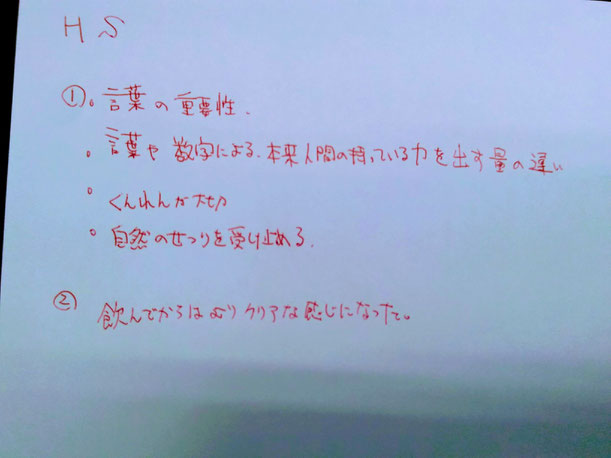 HS
①。言葉の重要性.
。言葉や数字による、本来人間の持っている力を出す量の違い
。くんれんが大切
。自然のせつりを受け止める.
② 飲んでからはよりクリアな感じになった。